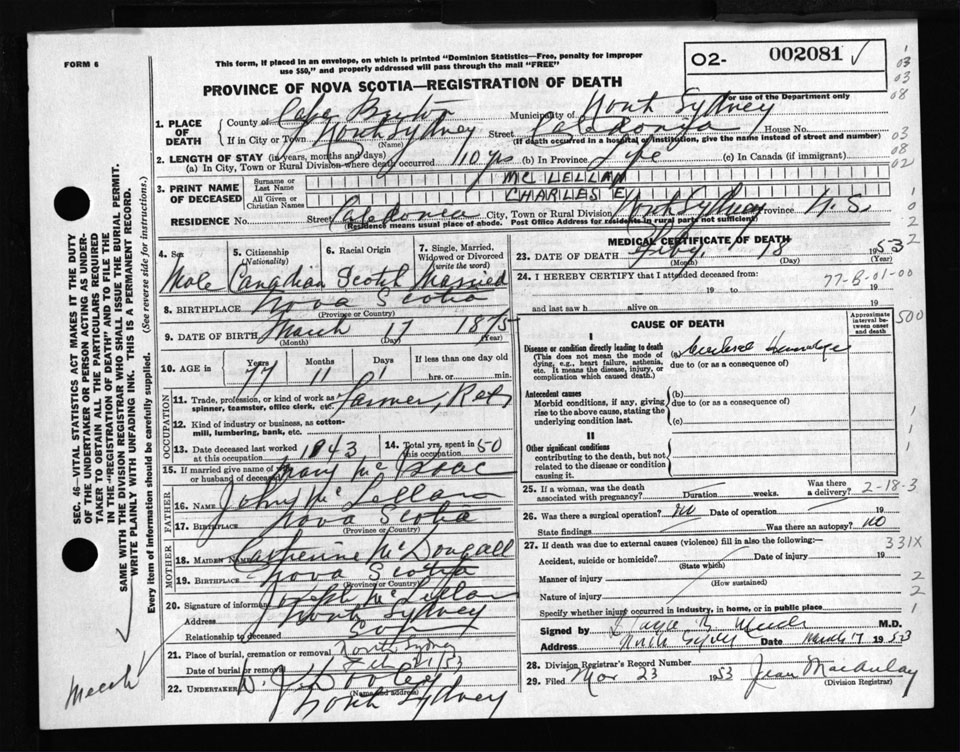 FORM 6
This form, if placed in an envelope, on which is printed "Dominion Statistics—Free, penalty for improper
use $50," and properly addressed will pass through the mail "FREE"
O2- 002081 ✓
For use of the Department only
PROVINCE OF NOVA SCOTIA—REGISTRATION OF DEATH
03
03
08
1. PLACE OF DEATH
County of Cape Breton Municipality of North Sydney
If in City or Town North Sydney Street House No.
(Name) (If death occurred in a hospital or institution, give the name instead of street and number)
03
08
02
2. LENGTH OF STAY (in years, months and days)
(a) In City, Town or Rural Division where death occurred 10 yrs (b) In Province Life (c) In Canada (if immigrant)
3. PRINT NAME OF DECEASED
Surname or Last Name MC LELLAN
All Given or Christian Names CHARLES E
RESIDENCE No. Street Caledonia City, Town or Rural Division North Sydney Province N.S.
(Residence means usual place of abode. Post Office Address for residents in rural parts not sufficient)
4. Sex Male
5. Citizenship (Nationality) Canadian
6. Racial Origin Scotch
7. Single, Married, Widowed or Divorced (write the word) Married
8. BIRTHPLACE Nova Scotia
(Province or Country)
9. DATE OF BIRTH March 17 1875
(Month) (Day) (Year)
10. AGE in Years 77 Months 11 Days 1 If less than one day old
hrs. or min.
OCCUPATION
11. Trade, profession or kind of work as
spinner, teamster, office clerk, etc. Farmer, Ret.
12. Kind of industry or business, as cotton-
mill, lumbering, bank, etc.
13. Date deceased last worked at this occupation 1943
14. Total yrs. spent in this occupation 50
15. If married give name of wife
or husband of deceased Mary McIsaac
FATHER
16. NAME John McLellan
17. BIRTHPLACE Nova Scotia
(Province or Country)
MOTHER
18. MAIDEN NAME Catherine McDougall
19. BIRTHPLACE Nova Scotia
(Province or Country)
20. Signature of informant Joseph McLellan
Address North Sydney
Relationship to deceased Son
21. Place of burial, cremation or removal North Sydney
Date of burial or removal Feb 21/53
22. UNDERTAKER
(Name and address) North Sydney
MEDICAL CERTIFICATE OF DEATH
23. DATE OF DEATH Feby. 18 1953
(Month) (Day)
24. I HEREBY CERTIFY that I attended deceased from:
19 to 19
77-B-01-00
and last saw h alive on 19
CAUSE OF DEATH
Approximate interval between onset and death
500
I
Disease or condition directly leading to death
(This does not mean the mode of
dying, e.g., heart failure, asthenia,
etc. It means the disease, injury, or
complication which caused death.)
(a) Cerebral Hemorrhage
due to (or as a consequence of)
Antecedent causes
Morbid conditions, if any, giving
rise to the above cause, stating the
underlying condition last.
(b)
due to (or as a consequence of)
(c)
II
Other significant conditions
contributing to the death, but not
related to the disease or condition
causing it.
1
1
1
25. If a woman, was the death
associated with pregnancy? Duration weeks. Was there a delivery? 2-18-3
26. Was there a surgical operation? no Date of operation 19
State findings Was there an autopsy? no
27. If death was due to external causes (violence) fill in also the following:
331X
Accident, suicide or homicide? Date of injury 19
(State which)
Manner of injury
(How sustained)
2
Nature of injury
2
Specify whether injury occurred in industry, in home, or in public place
1
Signed by M.D.
Address North Sydney Date March 17 1953
28. Division Registrar's Record Number
29. Filed Mar 23 1953 Jean MacAulay
(Division Registrar)
SEC. 46—VITAL STATISTICS ACT MAKES IT THE DUTY
OF THE UNDERTAKER OR PERSON ACTING AS UNDER-
TAKER TO OBTAIN ALL THE PARTICULARS REQUIRED
IN THE "REGISTRATION OF DEATH" AND TO FILE THE
SAME WITH THE DIVISION REGISTRAR WHO SHALL ISSUE THE BURIAL PERMIT.
WRITE PLAINLY WITH UNFADING INK. THIS IS A PERMANENT RECORD.
Every item of information should be carefully supplied. (See reverse side for instructions.)